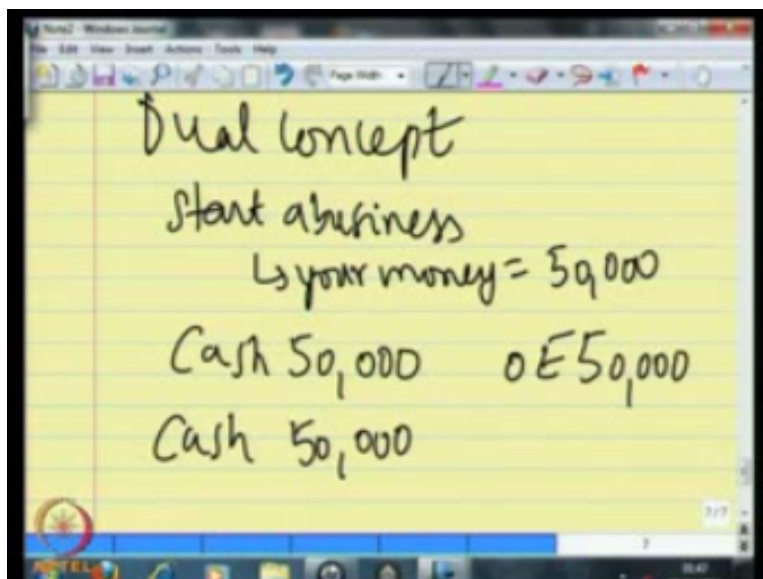 Note2 - Windows Journal
File Edit View Insert Actions Tools Help
Page Width
Dual Concept
Start a business
↳ your money = 50,000
Cash 50,000 OE 50,000
Cash 50,000
7/7
7
NPTEL